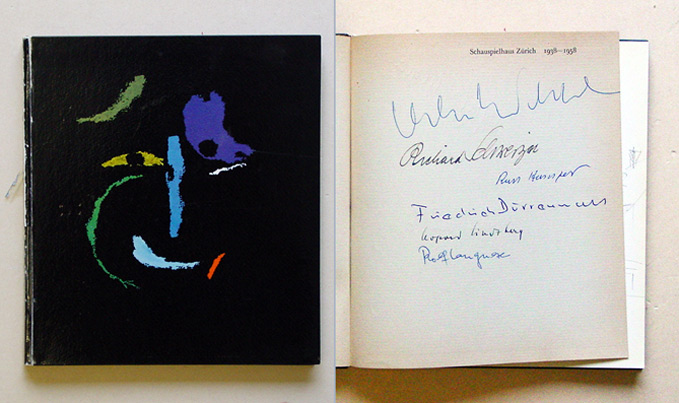 Schauspielhaus Zürich 1938—1958
Richard Schweizer
Kurt
Friedrich Dürrenmatt
Leopold Lindtberg
Rolf Langnese